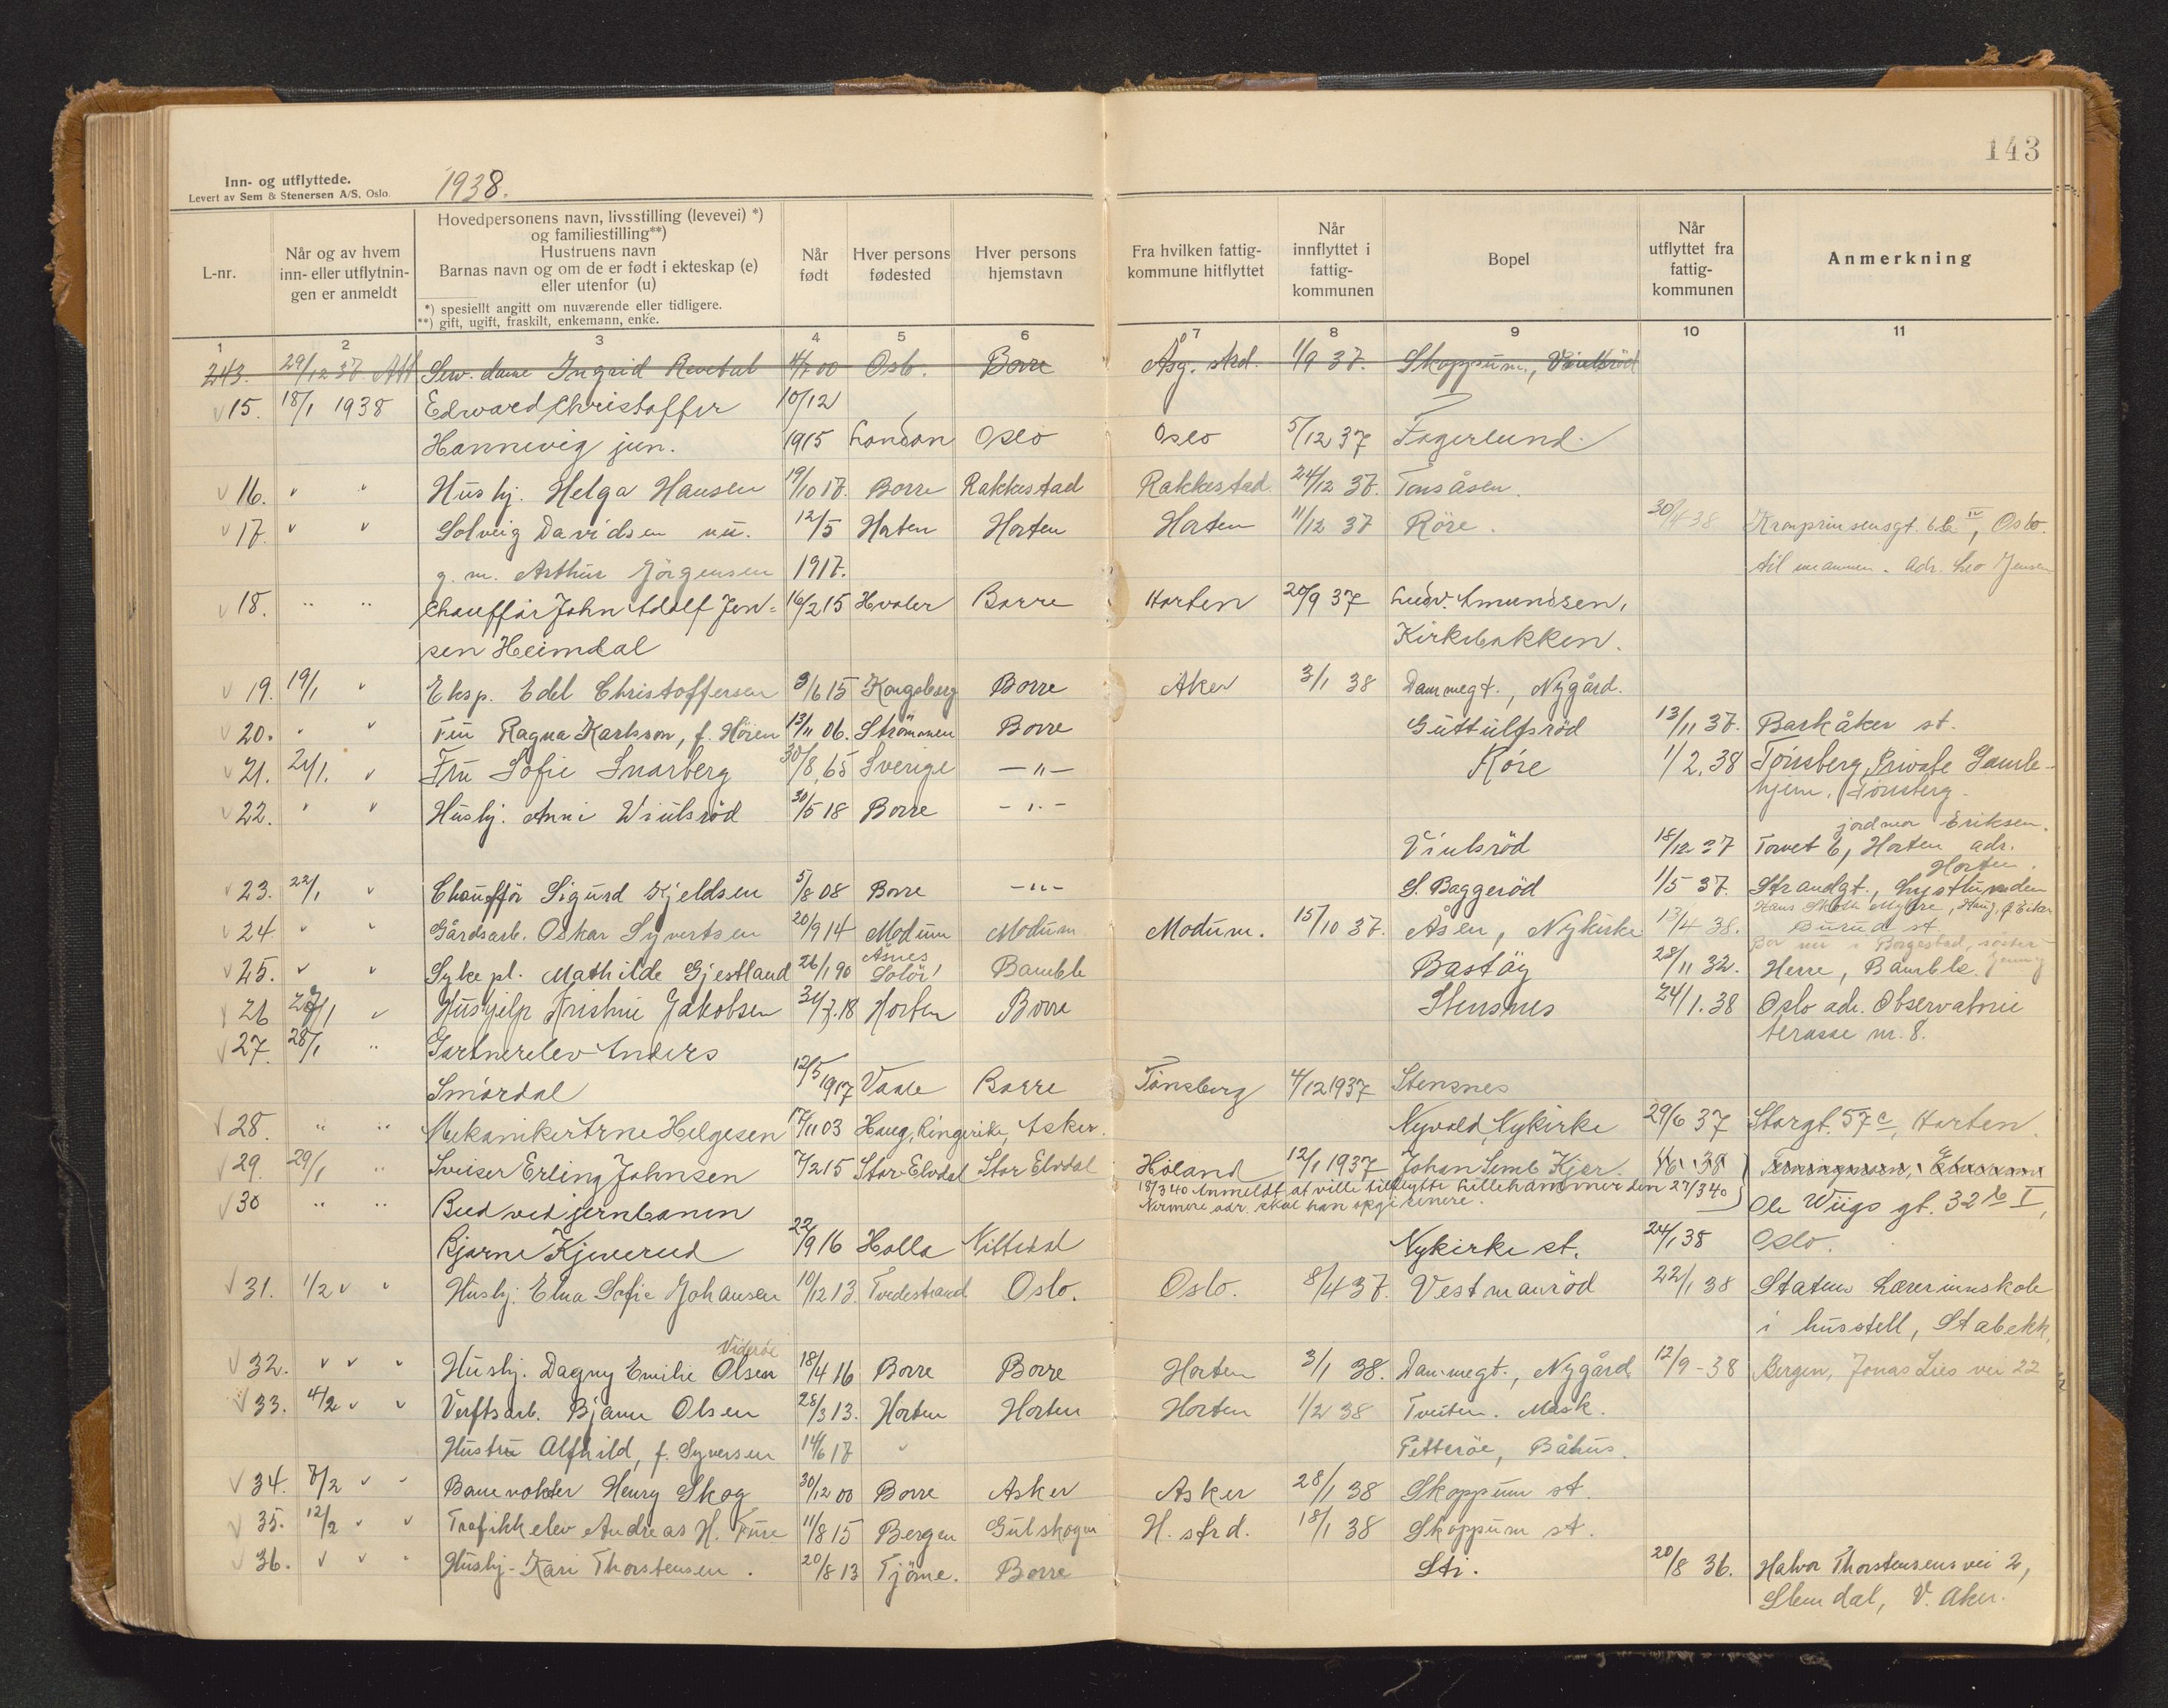 143
Inn- og utflyttede.
Levert av Sem & Stenersen A/S, Oslo.
1938.
L-nr.
Når og av hvem
inn- eller utflytnin-
gen er anmeldt
Hovedpersonens navn, livsstilling (levevei) *)
og familiestilling**)
Hustruens navn
Barnas navn og om de er født i ekteskap (e)
eller utenfor (u)
*) spesiellt angitt om nuværende eller tidligere.
**) gift, ugift, fraskilt, enkemann, enke.
Når
født
Hver persons
fødested
Hver persons
hjemstavn
Fra hvilken fattig-
kommune hitflyttet
Når
innflyttet i
fattig-
kommunen
Bopel
Når
utflyttet fra
fattig-
kommunen
Anmerkning
1 2 3 4 5 6 7 8 9 10 11
243. 29/12 37 Att Serv. dame Ingrid 4/7 00 Oslo. Borre Åsg. strd. 1/9 37. Skoppum, Viulsröd
15. 18/1 1938 Edward Christoffer 10/12
Hannevig jun. 1915 London Oslo Oslo 5/12 37 Fagerlund.
16. " " Hushj. Helga Hansen 19/10 17. Borre Rakkestad Rakkestad 24/12 37. Tonsåsen.
17. " " Solveig Davidsen nu. 12/5 Horten Horten Horten 11/12 37 Röre. 30/4 38 Kronprinsensgt. 6b IV, Oslo.
g. m. Arthur Jörgensen 1917. til mannen. adr. Leo Jensen
18. " " Chauffør John Adolf Jen- 16/2 15 Hvaler Borre Horten 20/9 37 Ludv. Amundsen,
sen Heimdal Kirkebakken.
19. 19/1 " Eksp. Edel Christoffersen 3/6 15 Kongsberg Borre Aker 3/1 38 Dammegt., Nygård.
20. " " Fru Ragna Karlsson, f. Hören 13/11 06. Strömmen Borre Guttulfsröd 13/11 37. Barkåker st.
21. 21/1. " Fru Sofie Snarberg 30/8, 65 Sverige — " — Röre 1/2. 38 Tönsberg, Private Gamle-
hjem, Tönsberg.
22. " " Hushj. Anni Wiulsröd 30/5 18 Borre — " —
jordmor Eriksen.
Viulsröd 18/12 37 Torvet 6, Horten adr.
Horten.
23. 22/1 " Chauffør Sigurd Kjeldsen 5/8 08 Borre — " — S. Baggeröd 1/5 37. Strandgt., Lysthuxden
24. " " Gårdsarb. Oskar Syvertsen 20/9 14 Modum Modum Modum. 15/10 37. Åsen, Nykirke 13/4 38. Burud st.
25. " " Sykepl. Mathilde Gjestland 26/1 90 Åsnes Solör! Bamble Bastöy 28/11 32. Herre, Bamble.
26 27/1 " Hushjelp Kristine Jakobsen 31/3. 18 Horten Borre Stensnes 24/1. 38 Oslo adr. Observatorie
terasse nr. 8.
27. 28/1 " Gartnerelev Anders
Smørdal 12/5 1917 Vaale Borre Tønsberg 4/12 1937 Stensnes
28. " " Mekaniker Arne Helgesen 17/11 03 Haug, Ringerike, Asker. Nyvold, Nykirke 29/6 37 Storgt. 57c, Horten.
29. 29/1 " Sveiser Erling Johnsen 7/2 15 Stor-Elvdal Stor Elvdal Høland 12/1 1937 Johan Semb Kjær.
18/3 40 Anmeldt at ville tilflytte Lillehammer den 27/3 40
Nærmere adr. skal han opgi senere.
30 " " Bud ved jernbanen Ole Wiigs gt. 32 b I,
Bjarne Kjenerud 22/9 16 Holla Nittedal Nykirke st. 24/1 38 Oslo.
31. 1/2 " " Hushj. Elna Sofie Johansen 10/12 13. Tvedestrand Oslo. Oslo. 8/4 37. Vestmanröd 22/1 38 Statens Lærerinneskole
i husstell, Stabekk.
Videröe
32. " " " Hushj. Dagny Emilie Olsen 18/4 16 Borre Borre Horten 3/1 38. Dammegt., Nygård 12/9 - 38 Bergen, Jonas Lies vei 22
33. 4/2 " " Verftsarb. Bjarne Olsen 28/3 13. Horten Horten Horten 1/2 38 Tveiten. Mask.
Hustru Alfhild, f. Syversen 14/6 17 " Petteröe, Båhus.
34. 7/2 " " Banevokter Henry Skog 30/12 00 Borre Asker Asker 28/1 38 Skoppum st.
35. 12/2 " " Trafikkelev Andreas H. Fure 11/8 15 Bergen Gulskogen H. sfrd. 18/1 38 Skoppum st.
36. " " " Hushj. Kari Thorstensen. 20/8 13 Tjöme. Borre Sti. 20/8 36. Halvor Thorstensens vei 2,
Slemdal, V. Aker.